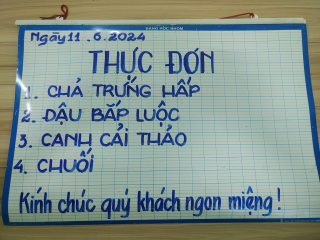 BẢNG HỌC NHÓM
Ngày 11.6.2024
THỰC ĐƠN
1. CHẢ TRỨNG HẤP
2. ĐẬU BẮP LUỘC
3. CANH CẢI THẢO
4. CHUỐI
Kính chúc quý khách ngon miệng!